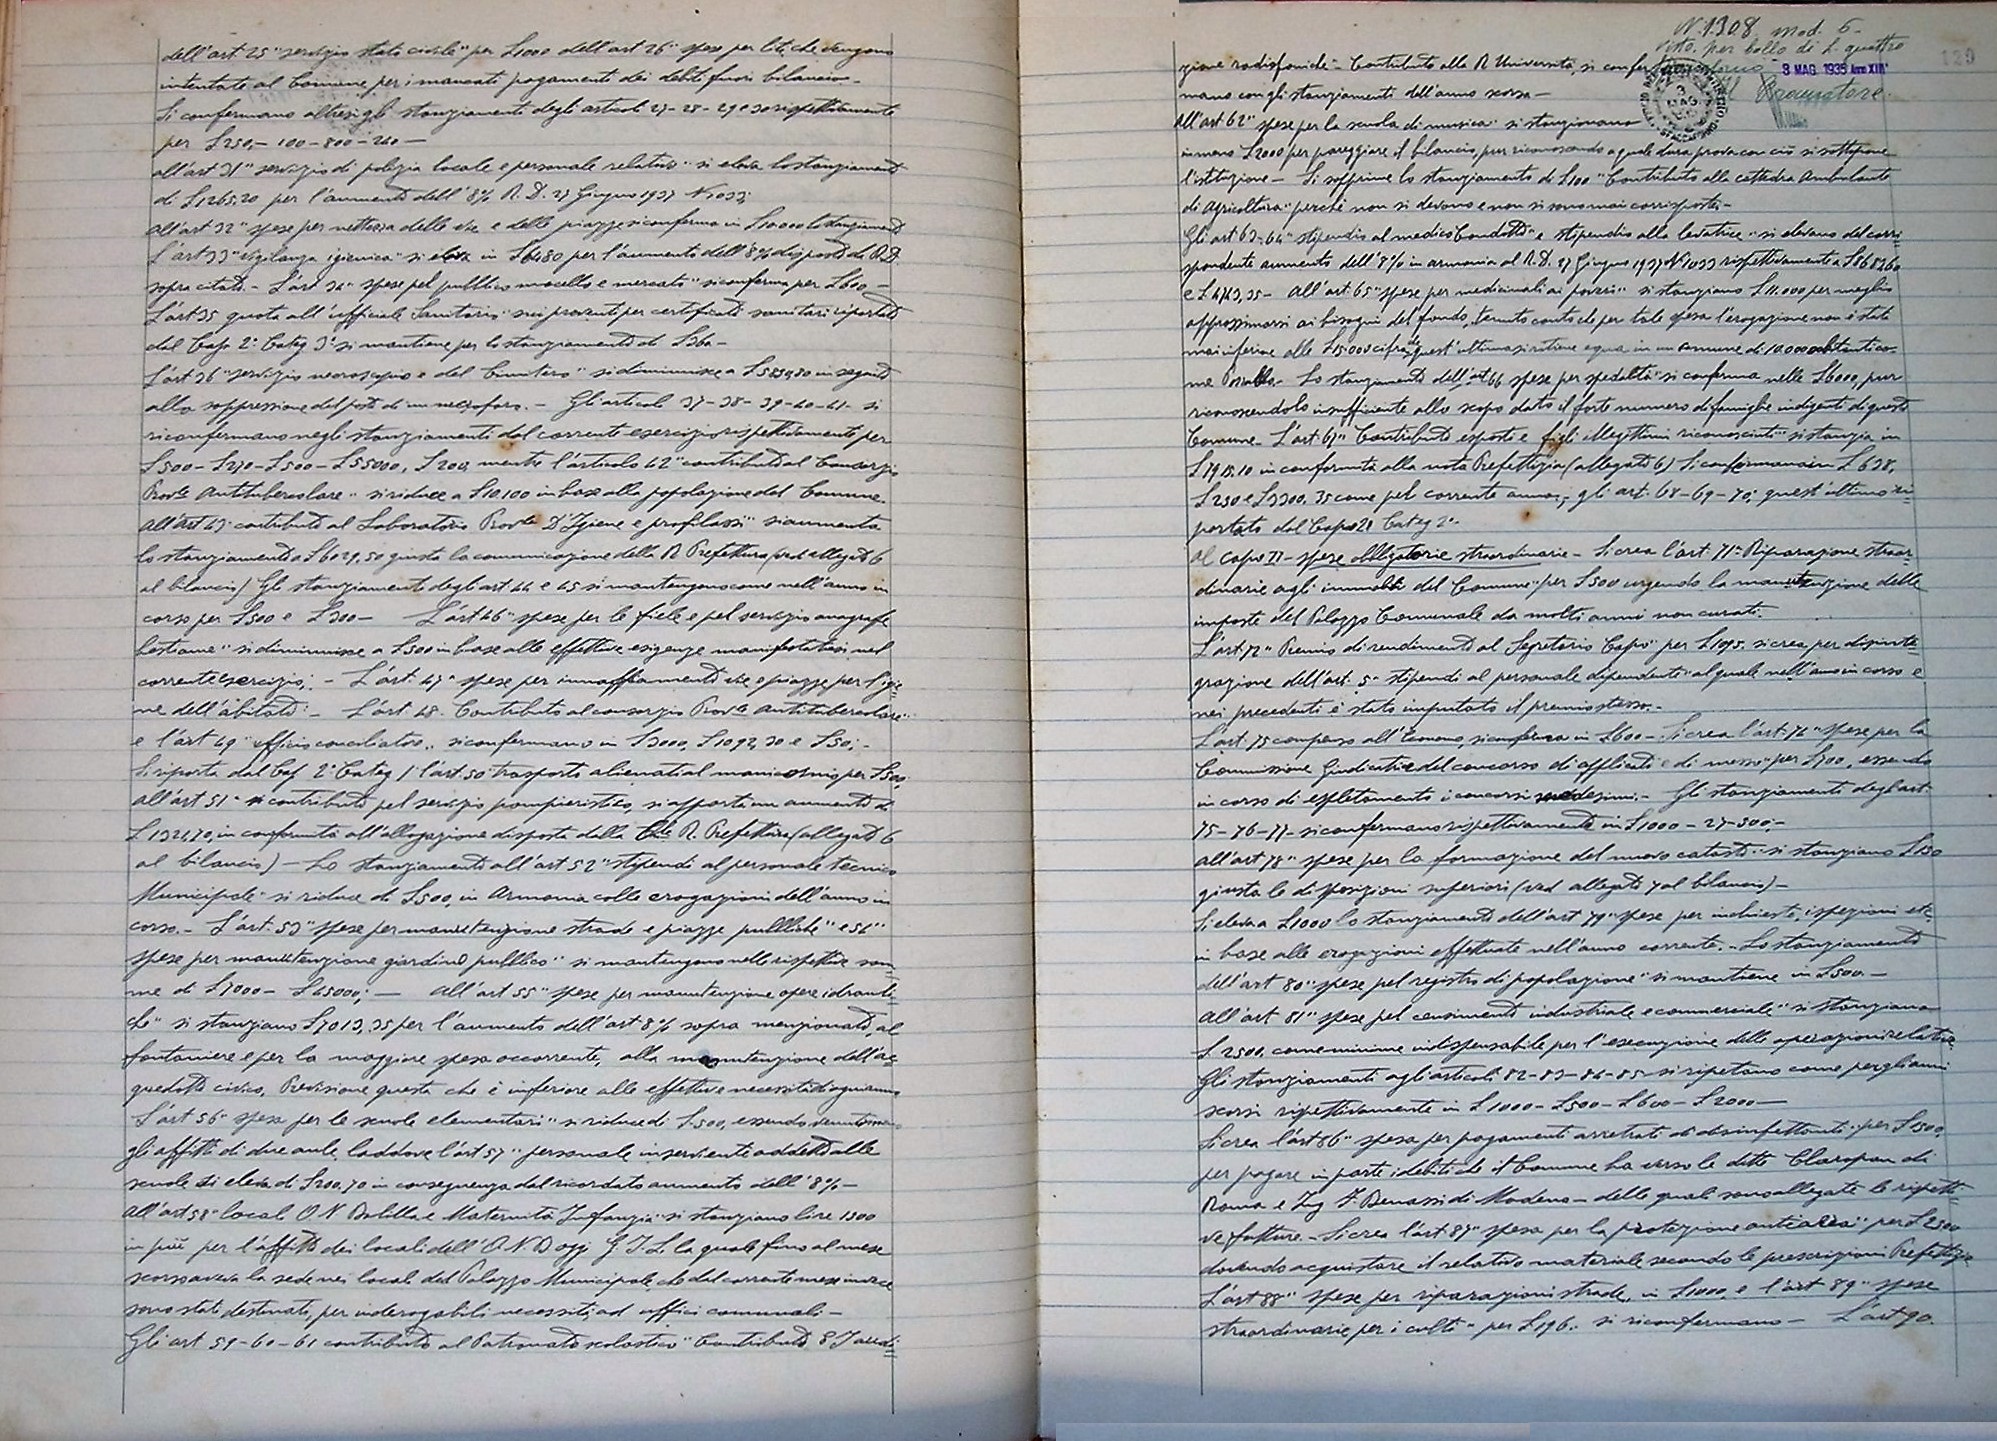 dell'art 25 "servizio stato civile" per £1000 dell'art 26" spese per liti che vengono
intentate al Comune per i mancati pagamenti dei debiti fuori bilancio -
Si confermano altresì gli stanziamenti degli articoli 27-28-29 e 30 rispettivamente
per £250,- 100-800-240-
all'art 31" servizio di polizia locale e personale relativo" si eleva lo stanziamento
di £1265,20 per l'aumento dell'8% R.D. 27 Giugno 1937 N 1033;
all'art 32" spese per nettezza delle vie e delle piazze si conferma in £10.000 lo stanziamento
L'art 33" vigilanza igienica" si eleva in £6480 per l'aumento dell'8% disposto da R.D.
sopra citato.- L'art 34" spese pel pubblico macello e mercato" si conferma per £600-
L'art 35 quota all'ufficiale Sanitario" sui proventi per certificati sanitari riportato
dal Cap 2° Categ 3ª si mantiene per lo stanziamento di £360-
L'art 36" servizio necroscopico e del Cimitero" si diminuisce a £5839,80 in seguito
alla soppressione del posto di un necroforo.- Gli articoli 37-38-39-40-41- si
riconfermano negli stanziamenti del corrente esercizio rispettivamente per
£500-£270-£500-£55000, £200, mentre l'articolo 42" contributo al Consorzio
Prov.le Antitubercolare" si riduce a £10.100 in base alla popolazione del Comune.
All'art 43 contributo al Laboratorio Prov.le D'Igiene e profilassi" si aumenta
lo stanziamento a £6029,50 giusta la comunicazione della R. Prefettura (ved allegato 6
al bilancio) Gli stanziamenti degli art 44 e 45 si mantengono come nell'anno in
corso per £500 e £300- L'art 46" spese per le fiele e pel servizio anagrafe
bestiame" si diminuisce a £500 in base alle effettive esigenze manifestatesi nel
corrente esercizio;- L'art. 47" spese per innaffiamento vie e piazze per l'igie
ne dell'abitato:- L'art. 48. Contributo al consorzio Prov.le Antitubercolare"
e l'art 49 ufficio conciliatore, si confermano in £3000, £1092,30 e £50;-
Si riporta dal Cap 2° Categ 1ª l'art. 50" trasporto alienati al manicomio per £500;
all'art 51" contributo pel servizio pompieristico, si apporta un aumento di
£1321,70, in conformità all'allogazione disposta dalla R. Prefettura (allegato 6
al bilancio)- Lo stanziamento all'art 52" stipendi al personale tecnico
Municipale" si riduce di £500, in armonia colle erogazioni dell'anno in
corso.- L'art. 53" spese per manutenzione strade e piazze pubbliche" e 54"
spese per manutenzione giardino pubblico" si mantengono nelle rispettive som-
me di £7000- £45000;- All'art 55" spese per manutenzione opere idrauli-
che" si stanziano £7013,35 per l'aumento dell'art 8% sopra menzionato, al
fontaniere e per la maggiore spesa occorrente, alla manutenzione dell'ac-
quedotto civico, Previsione questa che è inferiore alle effettive necessità di ogni anno
L'art 56" spese per le scuole elementari" si riduce di £.500, essendo venuti meno
gli affitti di due aule, laddove l'art 57" personale inserviente addetto alle
scuole si eleva di £200,70 in conseguenza del ricordato aumento dell'8%-
All'art 58" locali O.N. Balilla e Maternità Infanzia" si stanziano lire 1300
in più per l'affitto dei locali dell'O.N.B oggi G.I.L. la quale fino al mese
scorso aveva la sede nei locali del Palazzo Municipale, che dal corrente mese invece
sono stati destinati, per inderogabili necessità, ad uffici comunali-
Gli art 59-60-61 contributo al Patronato scolastico" Contributo E I audi
N. 1308 mod. 6-
visto per bollo di £ quattro
129
zione radiofoniche- Contributo alla R Università, si confer
3 MAG 1935 Anno XIII
mano con gli stanziamenti dell'anno scorso-
Il Procuratore
All'art 62" spese per la scuola di musica" si stanziano
in meno £2000 per pareggiare il bilancio, pur riconoscendo a quale dura prova con ciò si sottopone
l'istituzione- Si sopprime lo stanziamento di £100 "Contributo alla cattedra Ambulante
di Agricoltura" perchè non si devono e non si sono mai corrisposti-
Gli art 63-64" stipendio al medico Condotto" e stipendio alla levatrice" si elevano del corri
spondente aumento dell'8% in armonia al R.D. 27 Giugno 1937 N 1033 rispettivamente a £8683,60
e £4743,35- All'art 65" spese per medicinali ai poveri" si stanziano £11.000 per meglio
approssimarsi ai bisogni del fondo, tenuto conto che per tale spesa l'erogazione non è stata
mai inferiore alle £15.000 cifra, quest'ultima si ritiene equa in un comune di 10.000 abitanti co-
me - Lo stanziamento dell'art 66 spese per spedalità" si conferma nelle £6000, pur
riconoscendolo insufficiente allo scopo dato il forte numero di famiglie indigenti di questo
Comune- L'art 67" Contributo esposti e figli illegittimi riconosciuti" si stanzia in
£7915,10 in conformità alla nota Prefettizia (allegato 6) Si confermano in £638,
£250 e £3300,35 come pel corrente anno, gli art. 68-69-70; quest'ultimo ri-
portato dal Capo 2° Categ 2ª-
Al Capo II- spese obbligatorie straordinarie- Si crea l'art. 71" Riparazione straor
dinarie agli immobili del Comune" per £500 urgendo la manutenzione delle
imposte del Palazzo Comunale da molti anni non curati.
L'art. 72" Premio di rendimento al Segretario Capo" per £1095. si crea per disinte
grazione dell'art. 5" stipendi al personale dipendente" al quale nell'anno in corso e
nei precedenti è stato imputato il premio stesso.-
L'art. 73 compenso all'Economo, si conferma in £600- Si crea l'art. 74" spese per la
Commissione Giudicatrice del concorso di applicato e di messo" per £700, essendo
in corso di espletamento i concorsi medesimi.- Gli stanziamenti degli art.
75-76-77- si confermano rispettivamente in £1000-27-300;-
all'art 78" spese per la formazione del nuovo catasto" si stanziano £150
giusta le disposizioni superiori (ved allegato 7 al bilancio)-
Si eleva a £1000 lo stanziamento dell'art 79" spese per inchieste, ispezioni etc.
in base alle erogazioni effettuate nell'anno corrente.- Lo stanziamento
dell'art 80" spese pel registro di popolazione" si mantiene in £500.-
All'art 81" spese pel censimento industriale e commerciale" si stanziano
£.2500, come minimo indispensabile per l'esecuzione delle operazioni relative.
Gli stanziamenti agli articoli 82-83-84-85- si ripetono come per gli anni
scorsi rispettivamente in £1000-£500-£600-£2000-
Si crea l'art 86" spesa per pagamenti arretrati di disinfettanti" per £1500,
per pagare in parte i debiti che il Comune ha verso le ditte Cloropan di
Roma e Ing F. Benassi di Modena- delle quali sono allegate le rispetti
ve fatture.- Si crea l'art 87" spesa per la protezione antiaerea" per £2500
dovendo acquistare il relativo materiale secondo le prescrizioni Prefettizie
L'art 88" spese per riparazioni strade, in £1000, e l'art 89" spese
straordinarie per i culti" per £196.. si riconfermano- L'art 90.